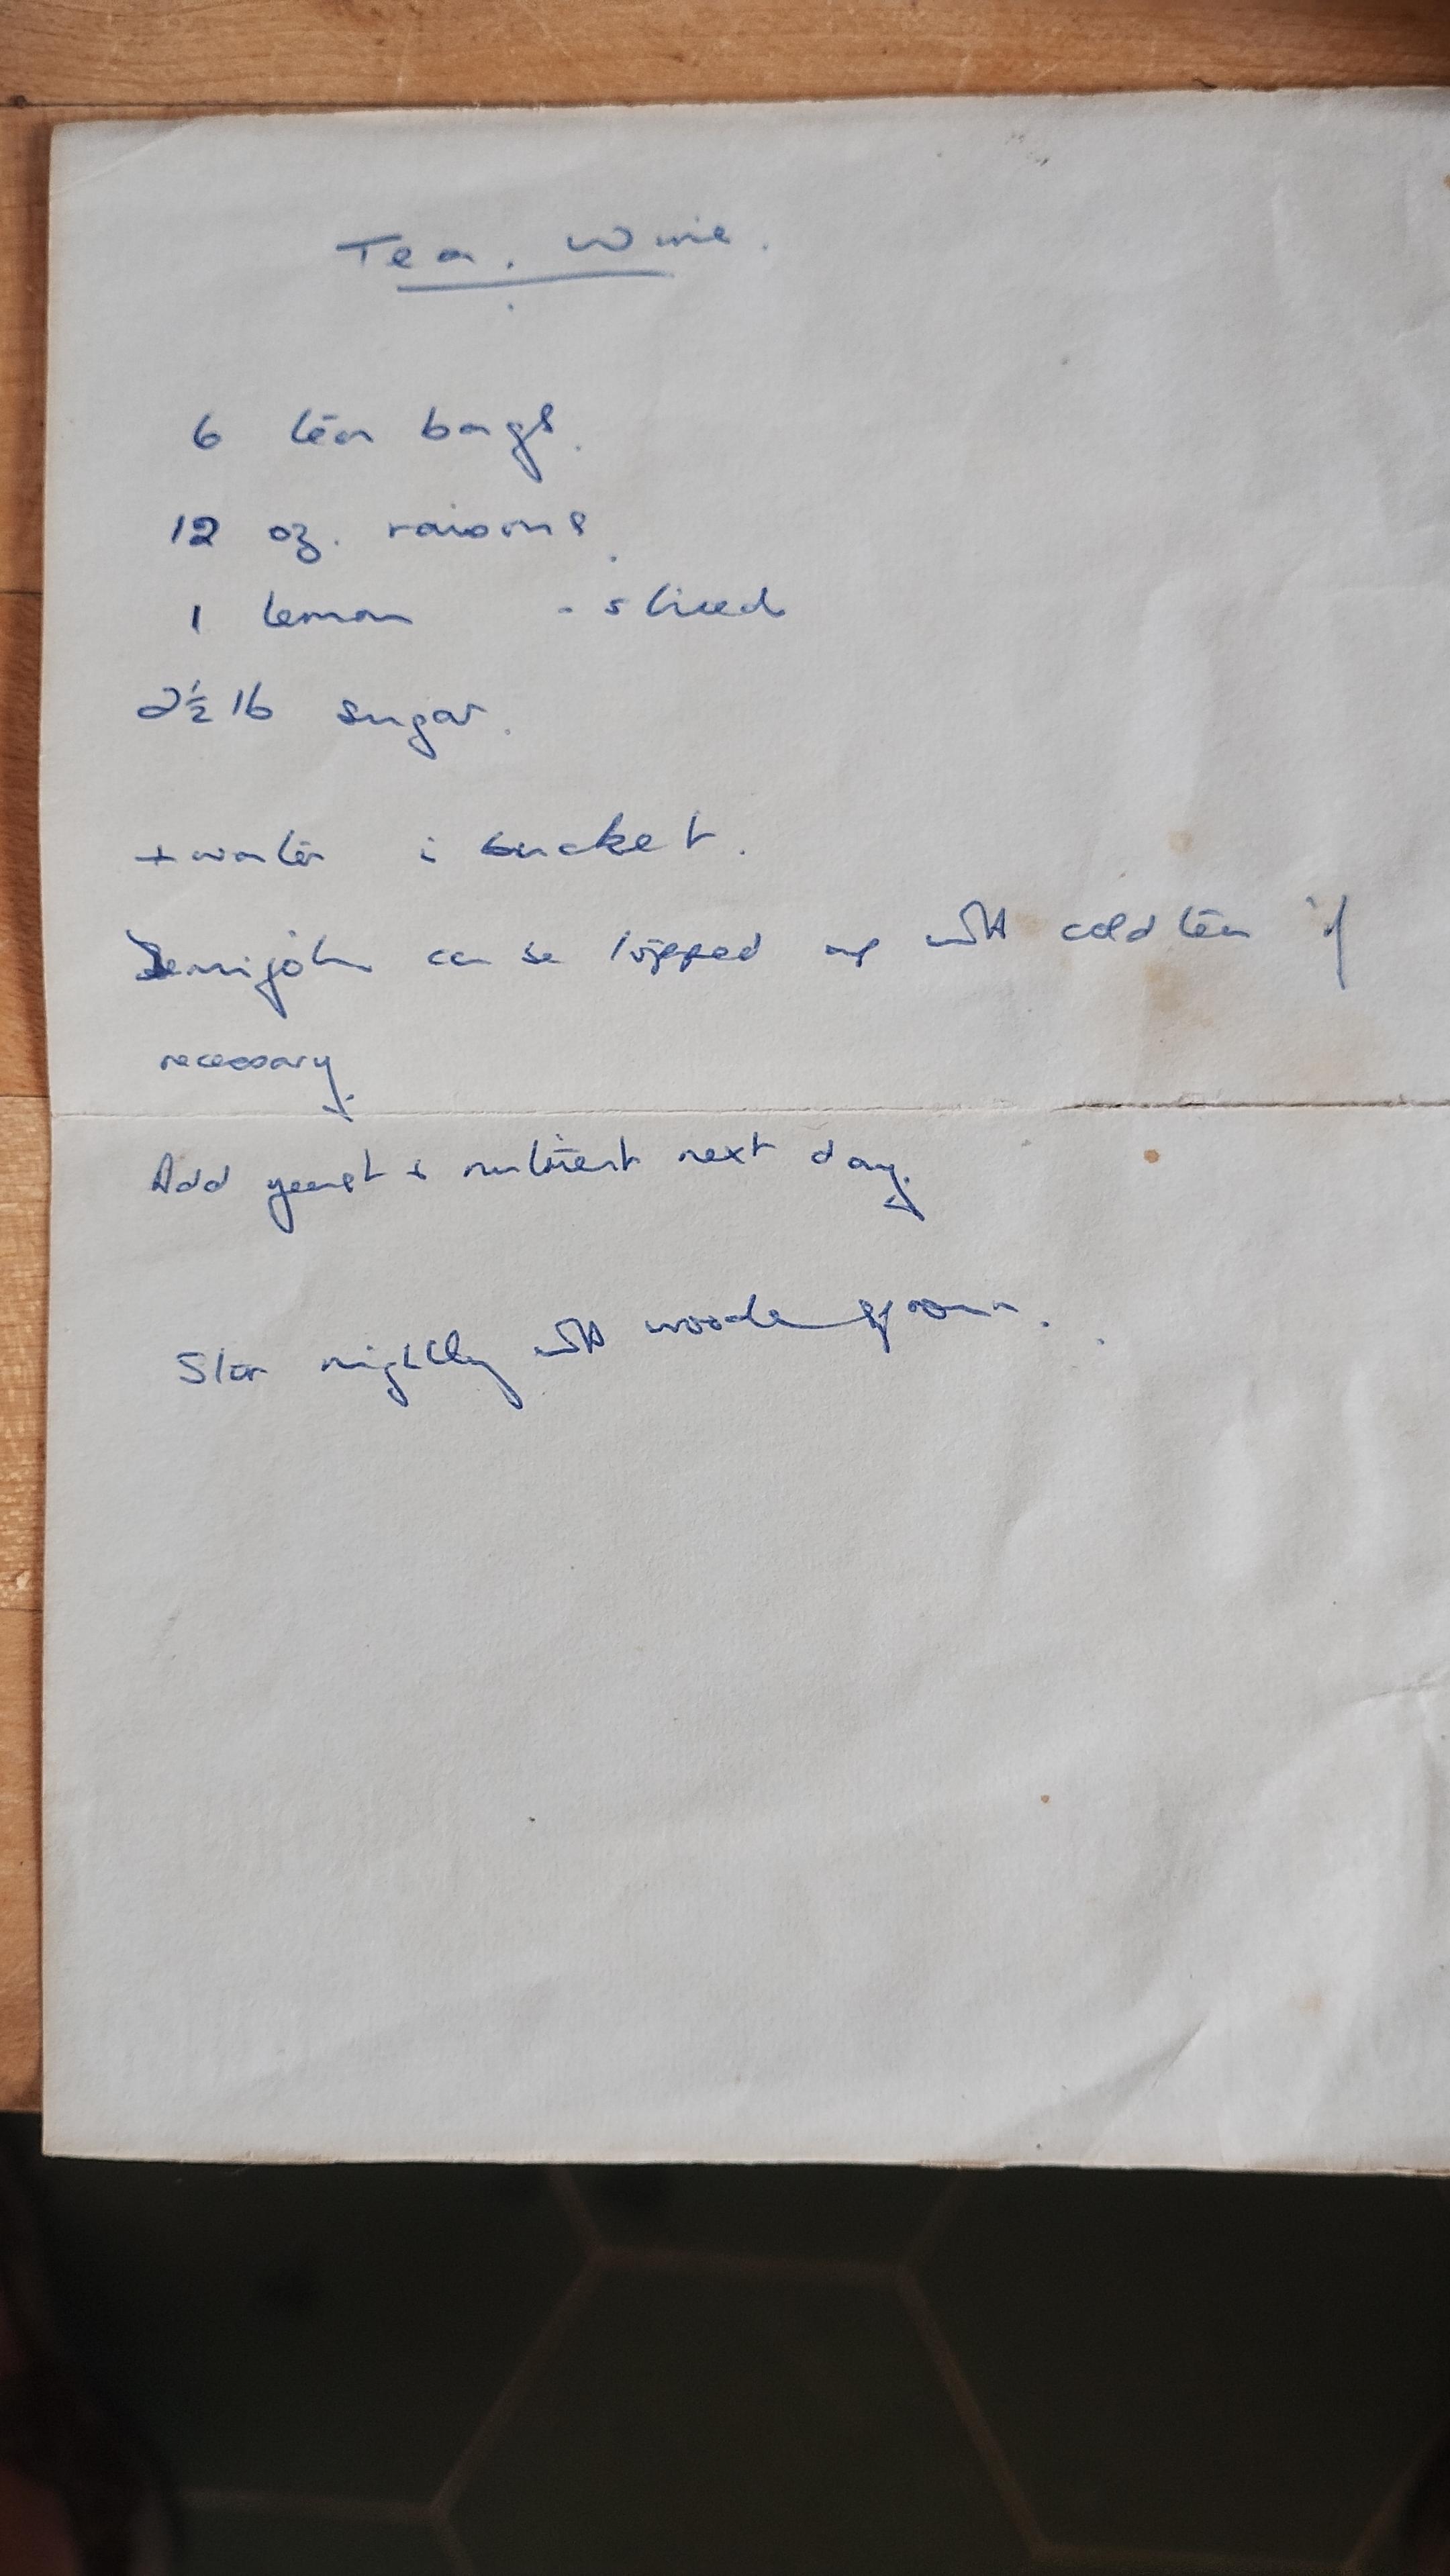 Tea. Wine.
6 tea bags.
12 oz. raisins.
1 lemon - sliced
2½ lb sugar.
+ water i bucket.
Demijohn can be topped up with cold tea if
necessary.
Add yeast & nutrient next day.
Stir nightly with wooden spoon.